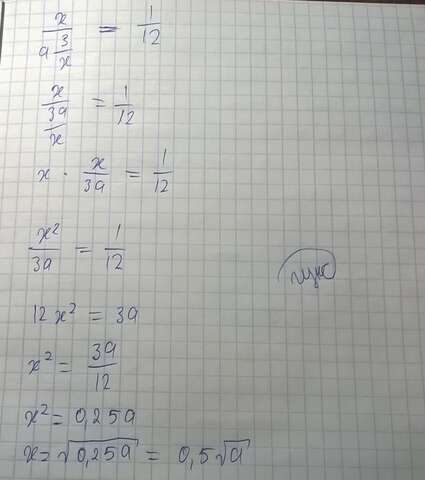 x / (a 3/x) = 1/12
x / (3a/x) = 1/12
x · x/3a = 1/12
x²/3a = 1/12
12x² = 3a
x² = 3a/12
x² = 0,25a
x = √0,25a = 0,5√a